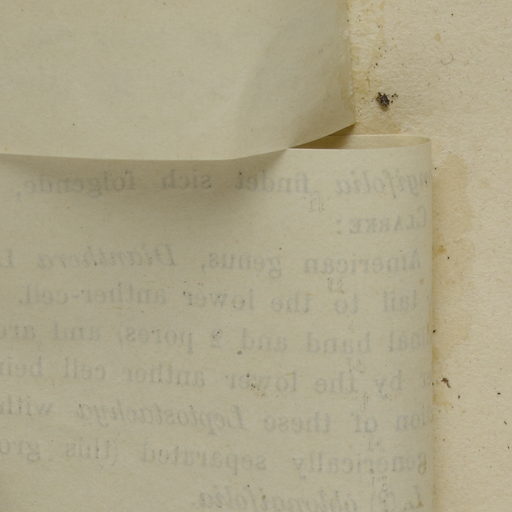 ngifolia findet sich folgende,
CLARKE:
American genus, Dianthera
tail to the lower anther-cell.
band and 2 pores) and are
by the lower anther cell bein
of these Leptostachya with
generically separated (this gro
oblongifolia.